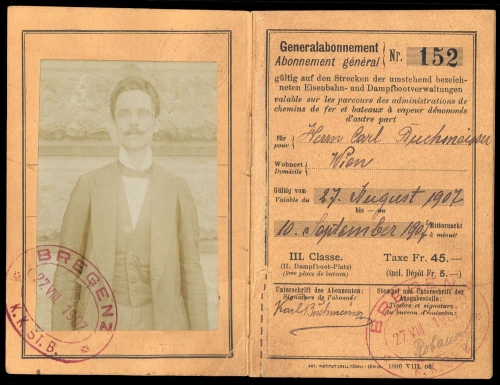 BREGENZ
27.VIII.1907
K.K.St.B.
Generalabonnement
Abonnement général
Nr. 152
gültig auf den Strecken der umstehend bezeich-
neten Eisenbahn- und Dampfbootverwaltungen
valable sur les parcours des administrations de
chemins de fer et bateaux à vapeur dénommés
d'autre part
für
pour
Herrn Carl
Wohnort
Domicile
Wien
Gültig vom
Valable du
27. August 1907
bis — au
10. September 1907
Mitternacht
à minuit
III. Classe.
(II. Dampfboot-Platz)
(2me place de bateau)
Taxe Fr. 45.—
(incl. Dépôt Fr. 5.—)
Unterschrift des Abonnenten:
Signature de l'abonné:
Karl
Stempel und Unterschrift der
Ausgabestelle:
Timbre et signature
du bureau d'émission:
BRE
27 VIII
ART. INSTITUT ORELL FÜSSLI - ZÜRICH
1000 VIII. 06.